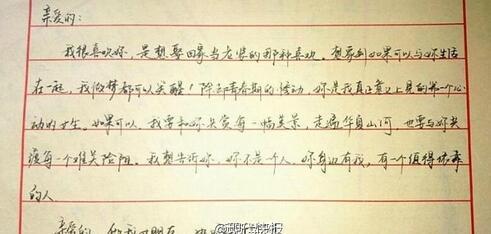 亲爱的:
我很喜欢妳,是想娶回家当老婆的那种喜欢。想象到如果可以与妳生活
在一起,我做梦都可以笑醒!除却青春期的悸动,妳是我真正意义上见的第一个心
动的女生。如果可以,我要和妳共赏每一幅美景,走遍华夏山河,也要与妳共
渡每一个难关险阻。我想告诉妳,妳不是一个人,妳身边有我,有一个值得依靠
的人
亲爱的,做我女朋友